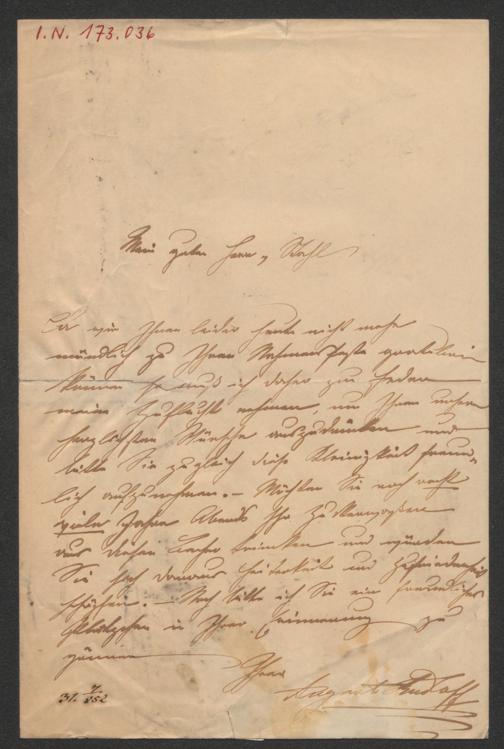 I.N. 173.036
Mein guter Herr v. Stahl
Da wir Ihnen leider heute nicht mehr
mündlich zu Ihrem Nahmens Feste gratulieren
können so muß ich daher zur Feder
meine Zuflucht nehmen, um Ihnen unsere
herzlichsten Wünsche auszudrücken und
bitte Sie zugleich diese Kleinigkeit freund-
lich aufzunehmen. – Möchten Sie noch recht
viele Jahre Abends Ihr
aus diesem Becher trinken und würden
Sie sich daraus Heiterkeit und Zufriedenheit
schöpfen. – Noch bitte ich Sie ein freundliches
Plätzchen in Ihrer Erinnerung zu
gönnen Ihrer
31. 7. 852